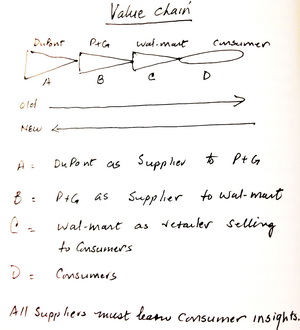 Value Chain
DuPont P+G Wal-mart Consumer
A B C D
Old
NEW
A = DuPont as Supplier to P+G
B = P+G as Supplier to Wal-mart
C = Wal-mart as retailer selling
to Consumers
D = Consumers
All Suppliers must learn Consumer insights.